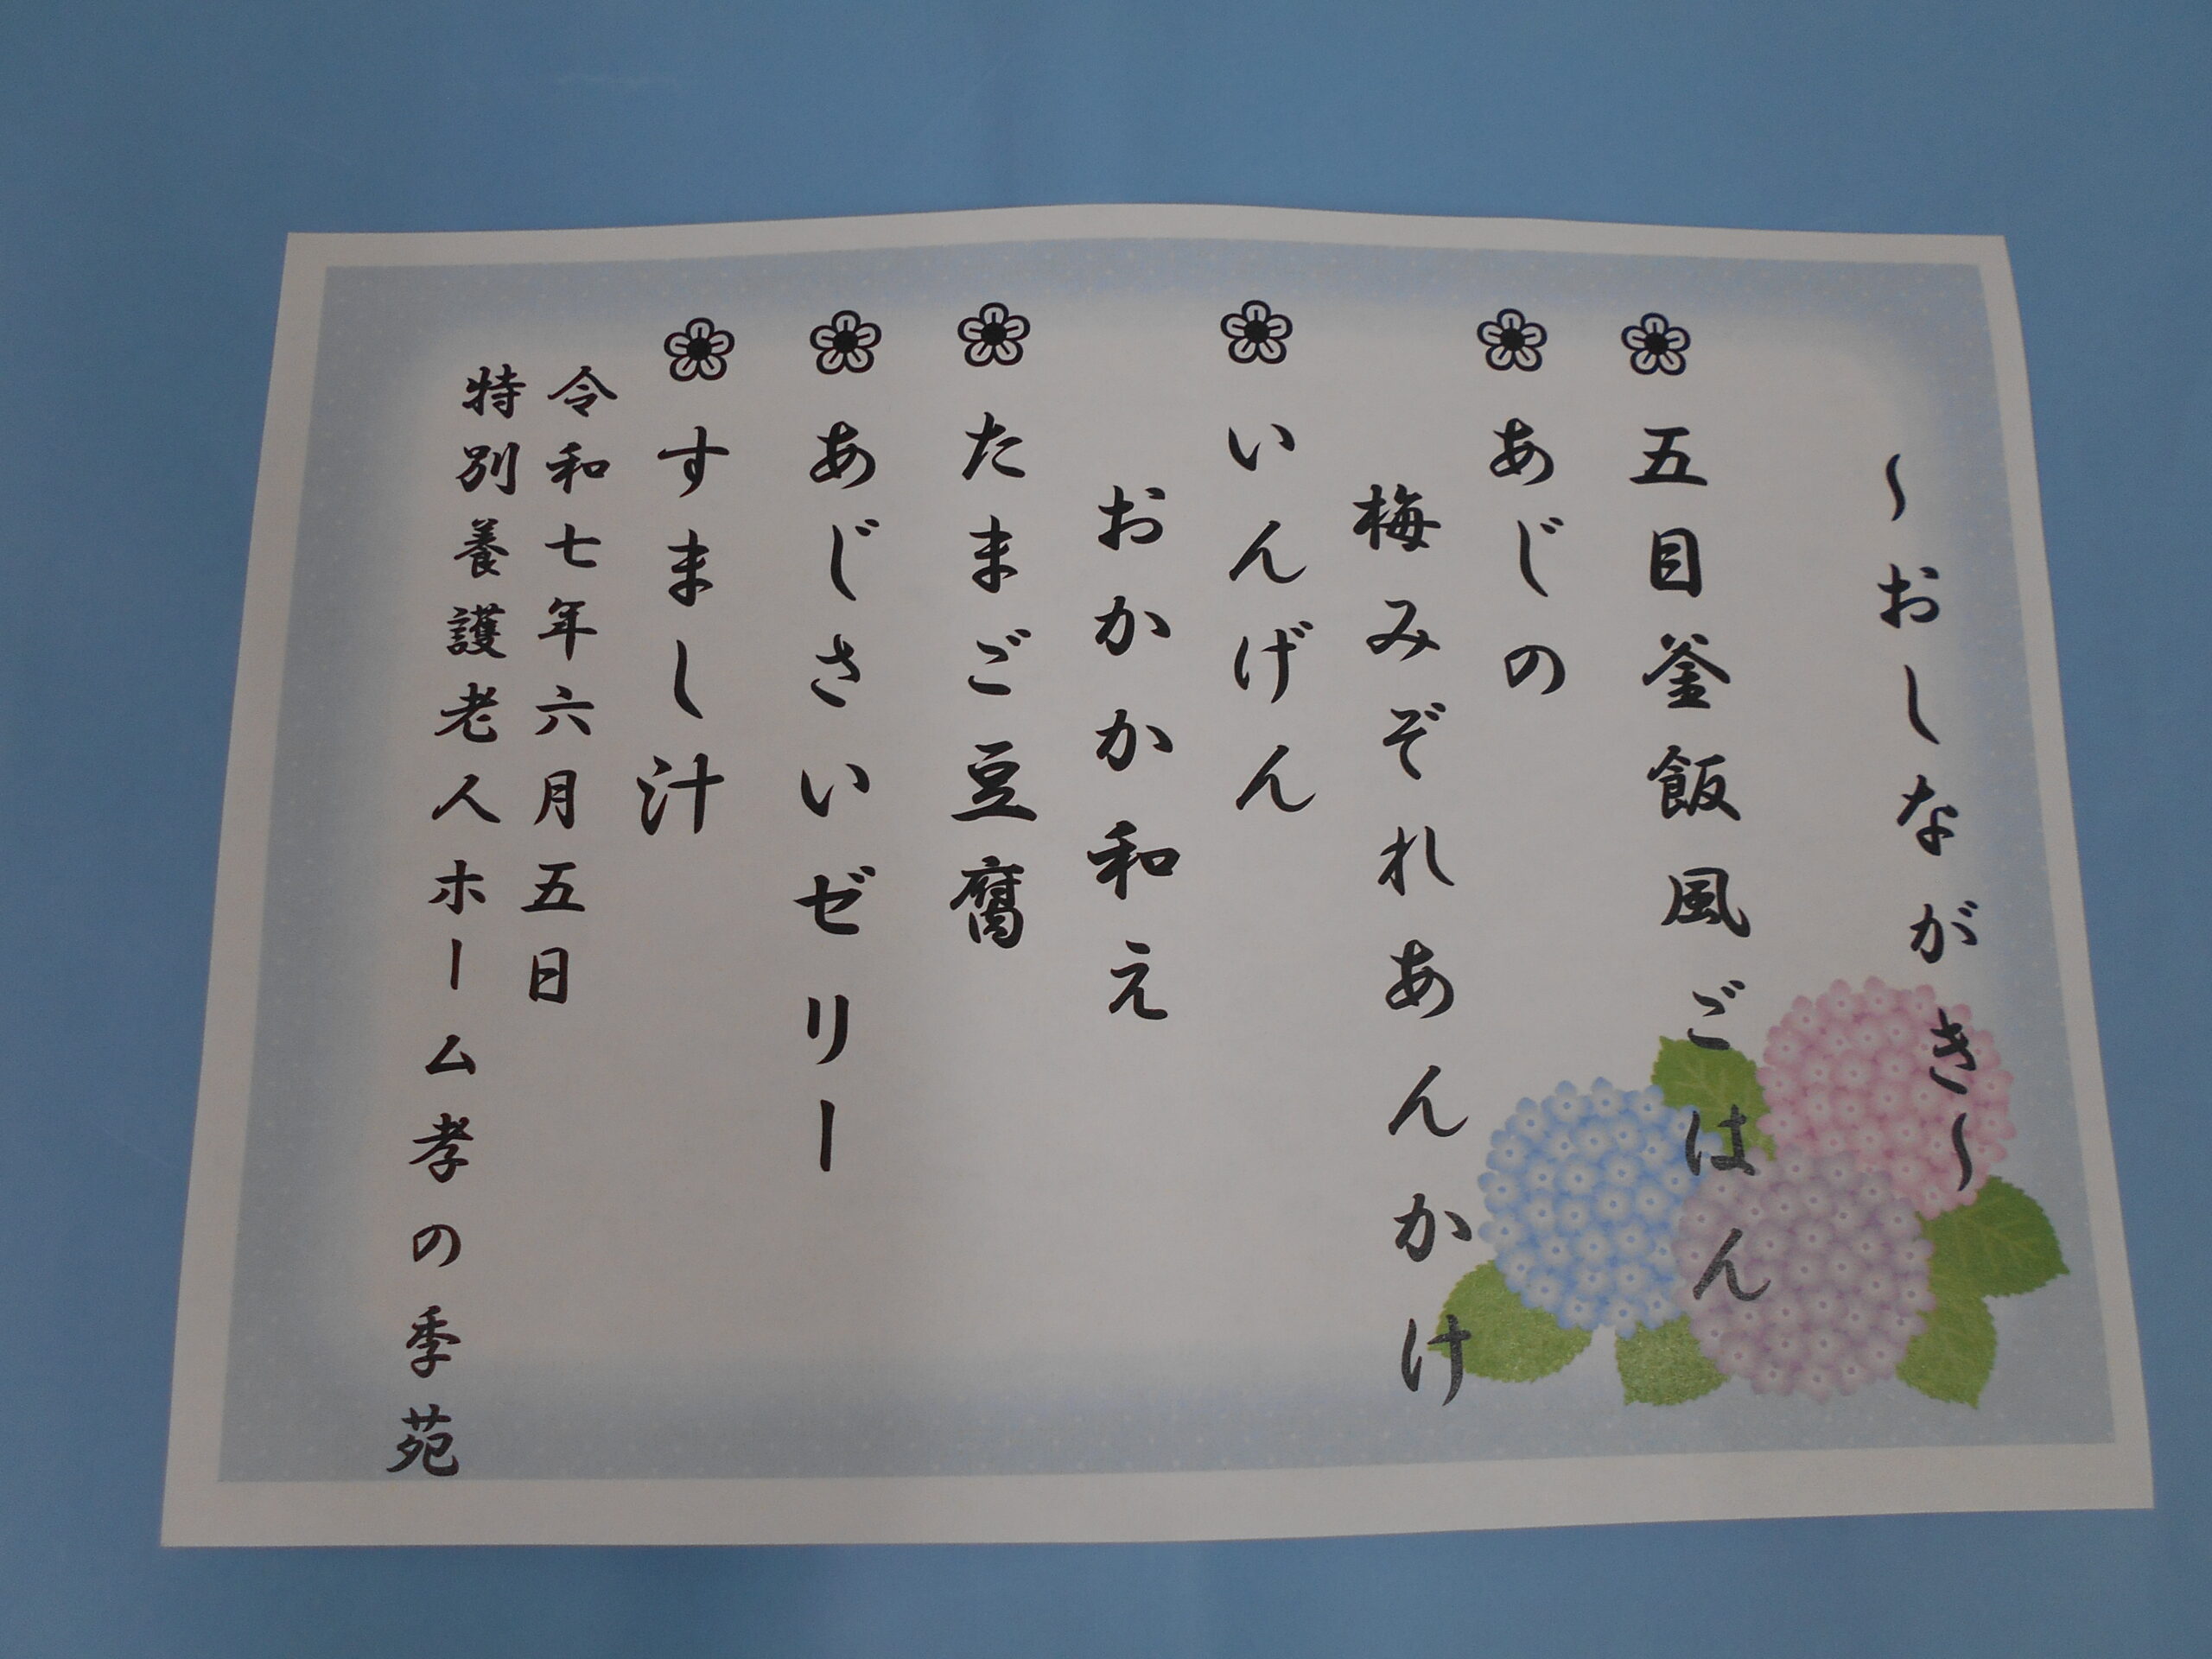 ～おしながき～
❀五目釜飯風ごはん
❀あじの
梅みぞれあんかけ
❀いんげん
おかか和え
❀たまご豆腐
❀あじさいゼリー
❀すまし汁
令和七年六月五日
特別養護老人ホーム孝の季苑